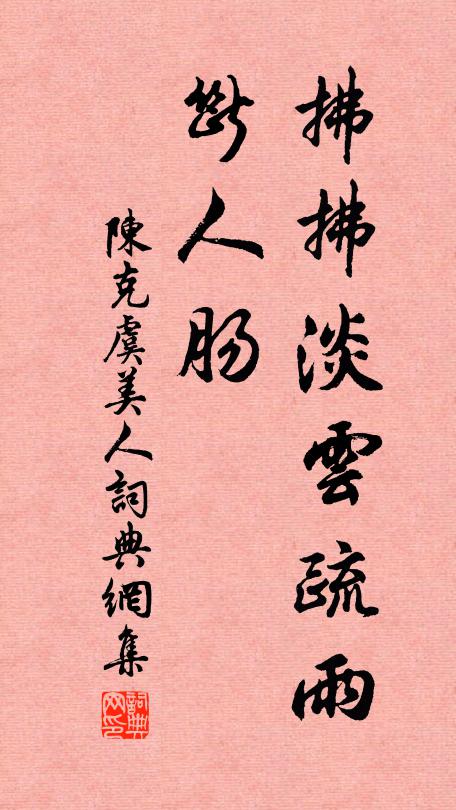 拂拂淡雲疏雨
斷人腸
陳克虞美人詞典網集
詞典网印